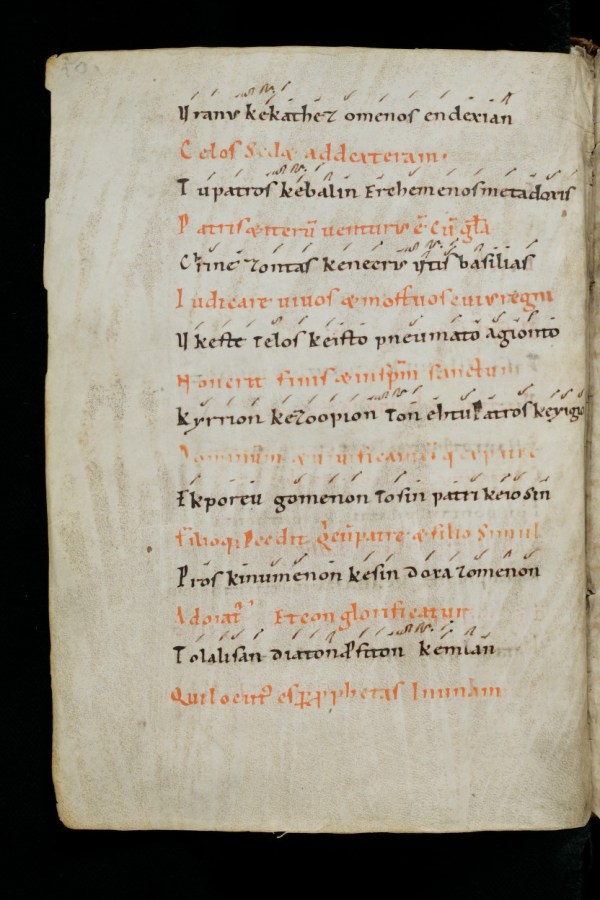 Uranus kekathez omenos endexian
Celos Sedæ addexteram.
Tupatros kebalin Erchemenos metadoxis
Patris æ iterū venturus ē cū gła
Crine zontas kenecrus ytis basilias
Iudicare vivos æ mortuos cuius regni
Ukeste telos keisto pneumato agionto
Non erit finis æ in spm sanctum
Kyrrion kezoopion Ton ehtu Patros keyigo
Dominum
Ekporeu gomenon Tosin patri keiosin
filioq; Pcedit Q̄ cū patre æ filio Simul
Pros kinumenon kesin doxazomenon
Adorat' Et conglorificatur
Tolalisan diatonpfiton kemian
Qui locut' es p pphetas In unam